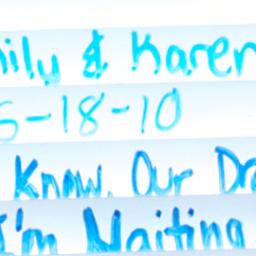 & Karen
-18-10
Know, Our
I'm Waiting